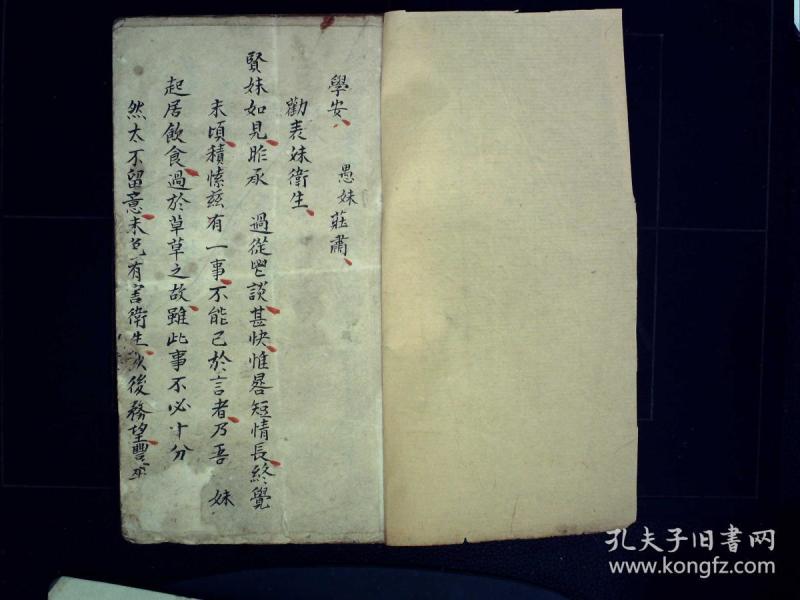 學安 愚妹莊肅
勸表妹衛生
賢妹如見昨承 過從 談甚快惟晷短情長終覺
未頃積愫茲有一事不能已於言者乃吾 妹
起居飲食過於草草之故雖此事不必十分
然太不留意未免有害衛生 後務望豐
孔夫子旧书网
www.kongfz.com